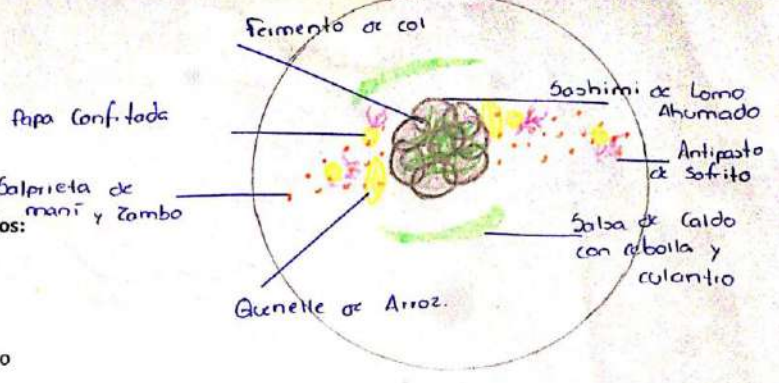 Fermento de col
Papa Confitada
Salprieta de
maní y Zambo
os:
Quenelle de Arroz.
Sashimi de Lomo
Ahumado
Antipasto
de Sofrito
Salsa de Caldo
con cebolla y
culantro
o